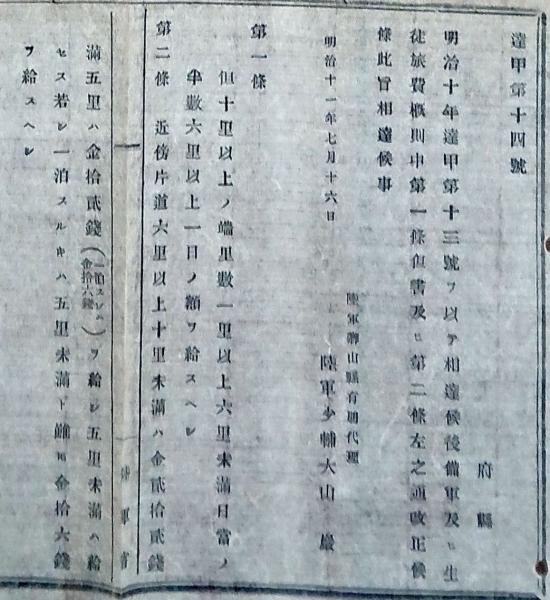 達甲第十四號
府縣
明治十年達甲第十三號ヲ以テ相達候後備軍及ヒ生
徒旅費概則中第一條但書及ヒ第二條左之通改正候
條此旨相達候事
陸軍卿山縣有朋代理
明治十一年七月十六日
陸軍少輔大山 巌
第一條
但十里以上ノ端里數一里以上六里未滿日當ノ
半數六里以上一日ノ額ヲ給スヘシ
第二條 近傍片道六里以上十里未滿ハ金貳拾貳錢
陸軍省
滿五里ハ金拾貳錢(一泊スレハ金拾六錢)ヲ給シ五里未滿ハ給
セス若シ一泊スルキハ五里未滿ト雖モ金拾六錢
ヲ給スヘシ